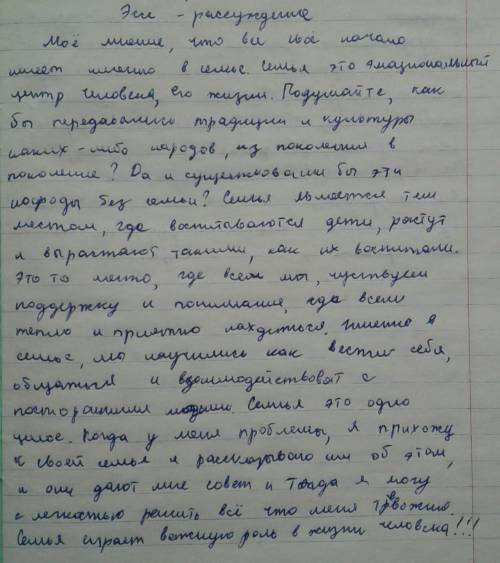 Эссе - рассуждение
Моё мнение, что все своё начало
имеет именно в семье. Семья это эмациональный
центр человека, его жизни. Подумайте, как
бы передавались традиции и культуры
каких-либо народов, из поколения в
поколение? Да и существовали бы эти
народы без семьи? Семья является тем
местом, где воспитываются дети, растут
и вырастают такими, как их воспитали.
Это то место, где всем мы, чувствуем
поддержку и понимание, где всем
тепло и приятно находиться. Именно в
семье, мы научились как вести себя,
общаться и взаимодействоват с
посторонними людьми. Семья это одно
целое. Когда у меня проблемы, я прихожу
к своей семье и рассказываю им об этом,
и они дают мне совет и тогда я могу
с легкостью решить всё что меня тревожит.
Семья играет важную роль в жизни человека!!!